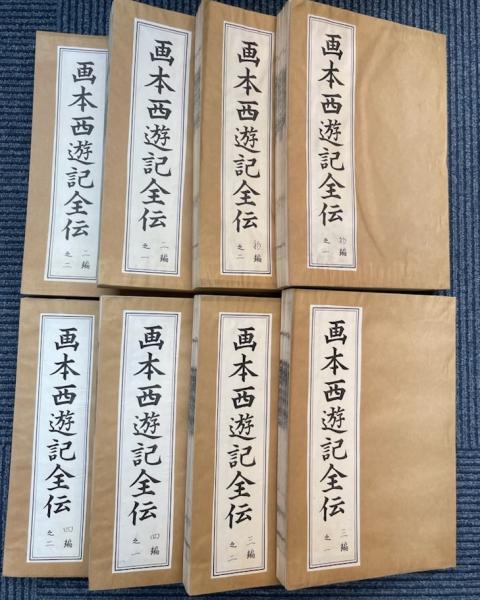 画本西遊記全伝
初編
之一
画本西遊記全伝
初編
之二
画本西遊記全伝
二編
之一
画本西遊記全伝
二編
之二
画本西遊記全伝
三編
之一
画本西遊記全伝
三編
之二
画本西遊記全伝
四編
之一
画本西遊記全伝
四編
之二